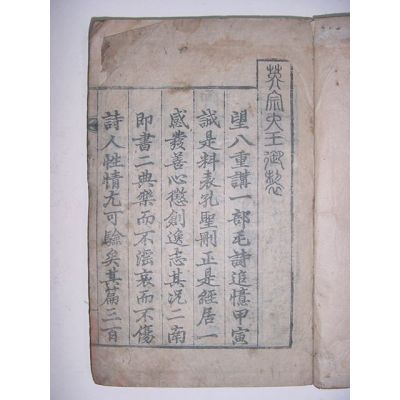 英宗大王御製
望八重講一部毛詩追憶甲寅
誠是料表孔聖刪正是經居一
感發善心懲創逸志其況二南
即書二典樂而不滛哀而不傷
詩人性情尤可驗矣其篇三百